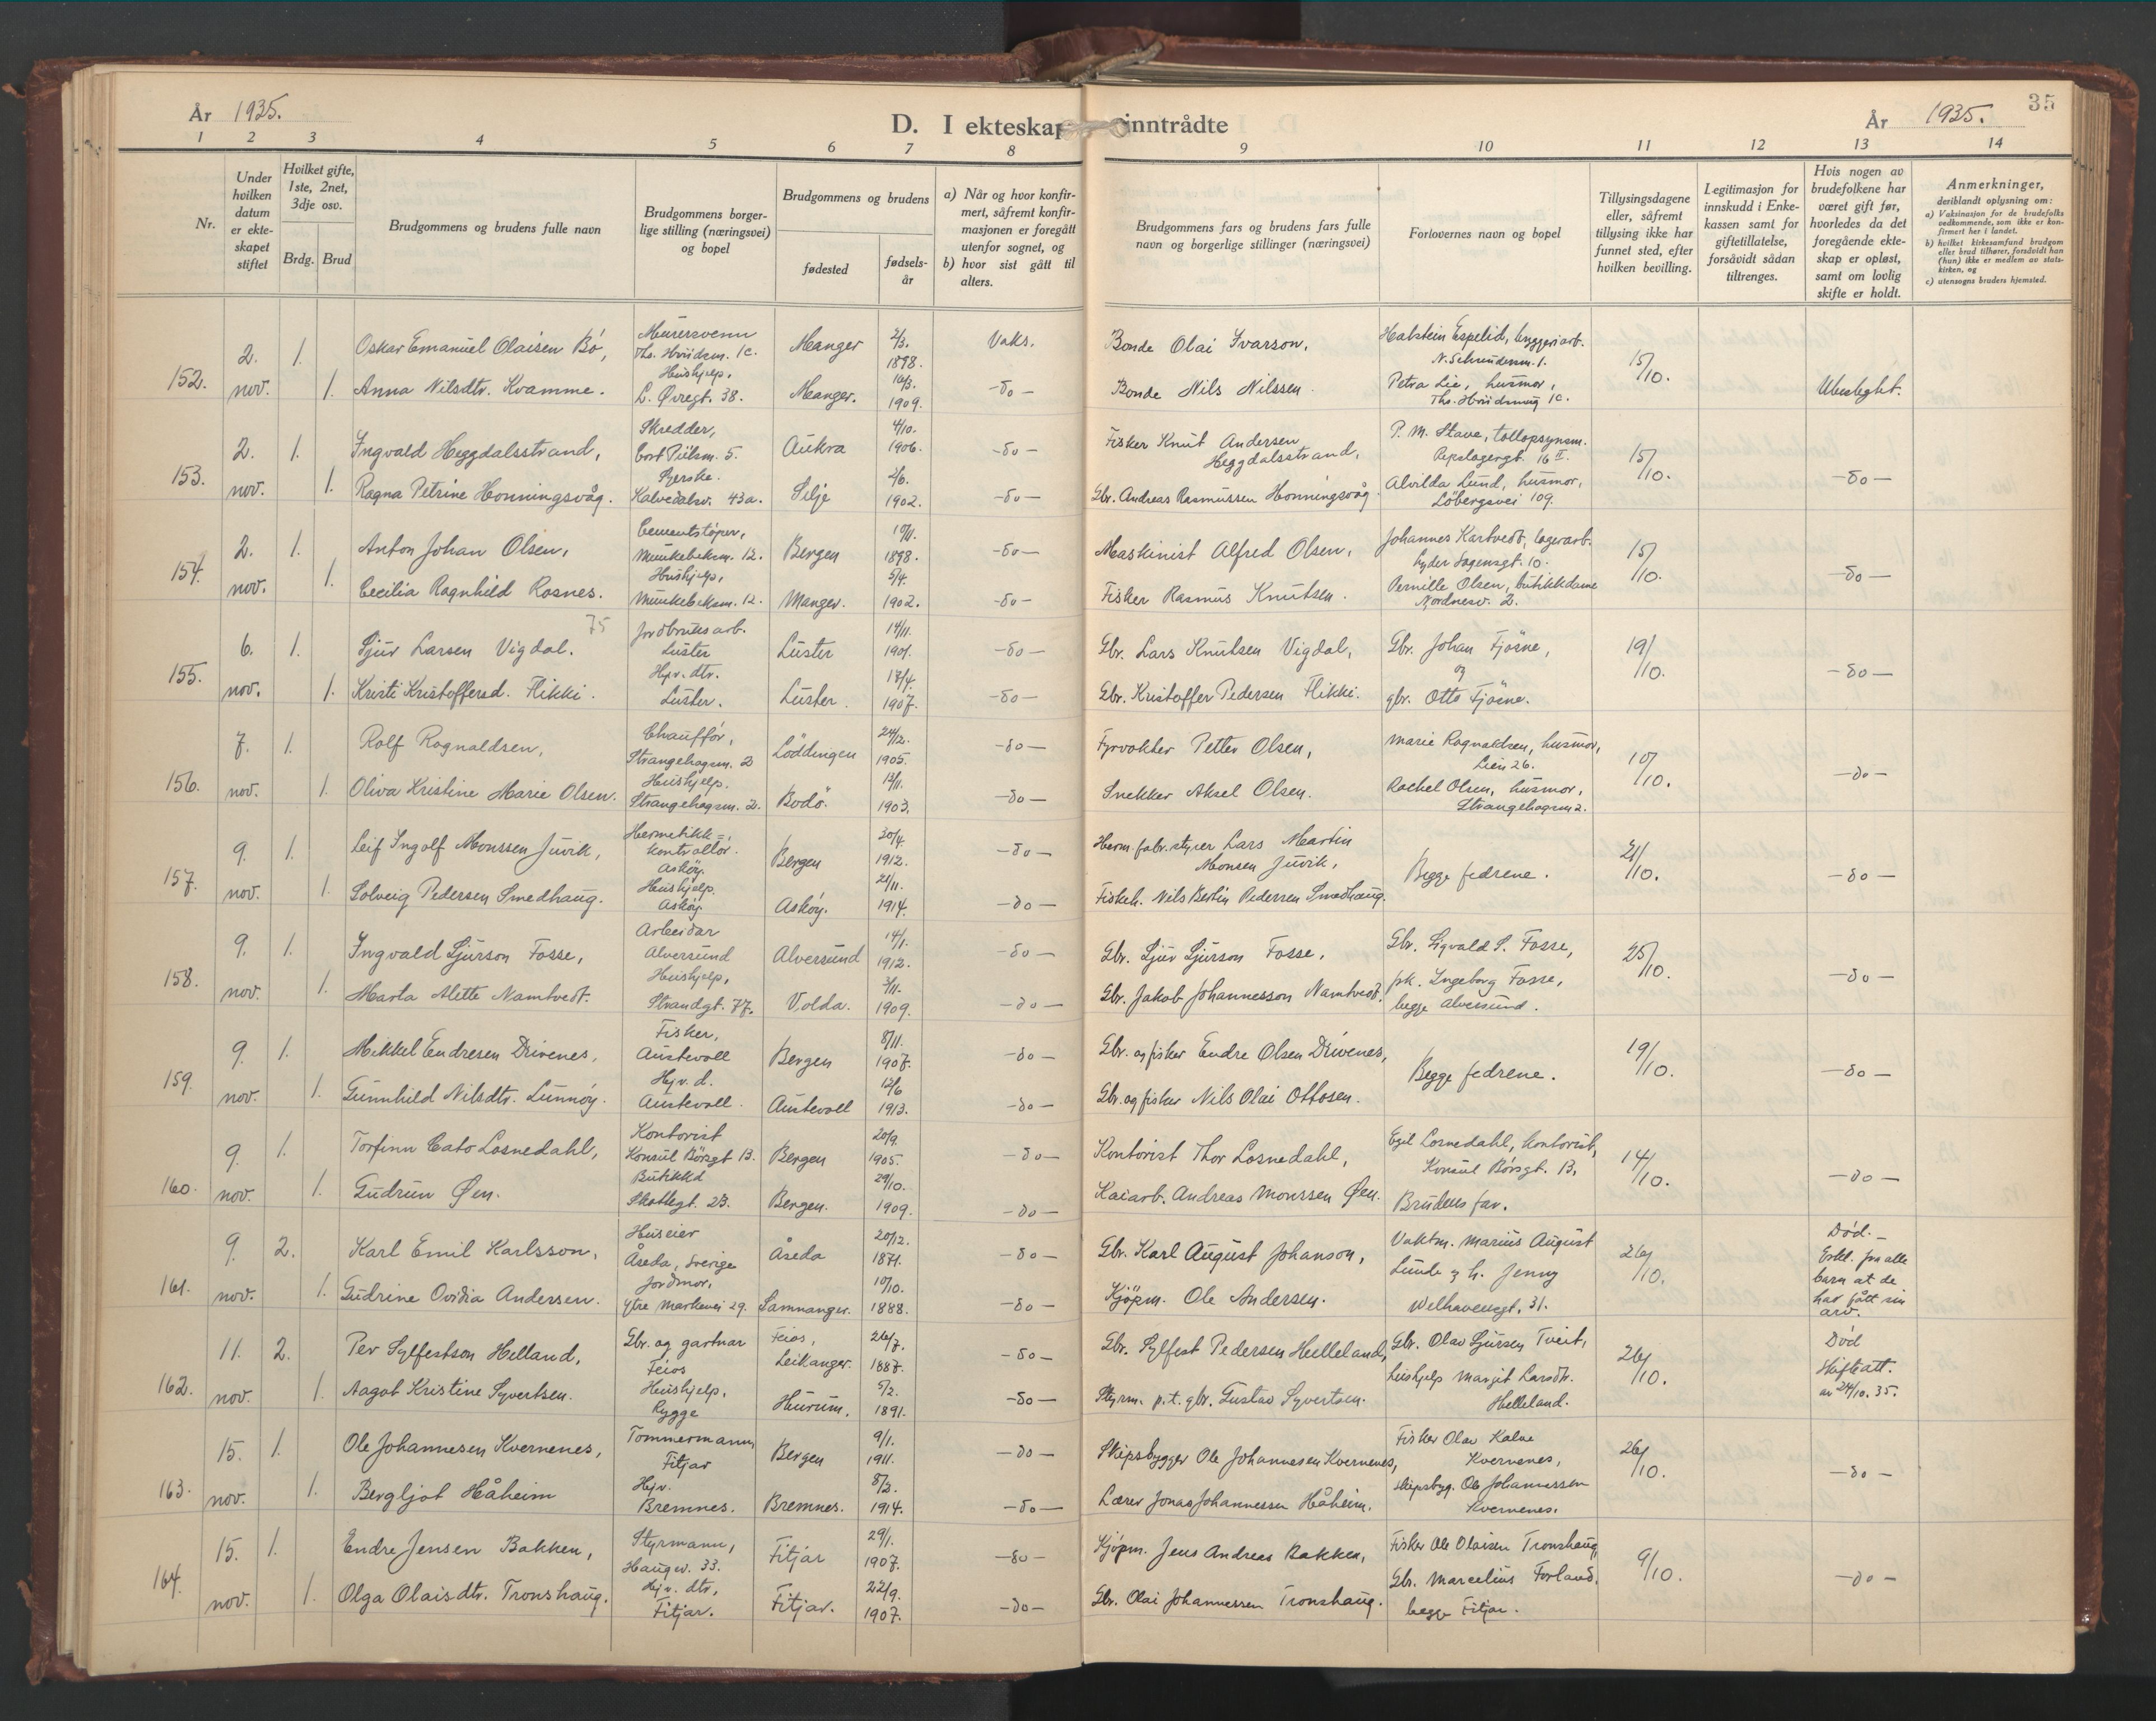 År 1935.
D. I ekteskap inntrådte
År 1935.
35
1 2 3 4 5 6 7 8 9 10 11 12 13 14
Nr.
Under hvilken datum er ekteskapet stiftet
Hvilket gifte, 1ste, 2net, 3dje osv.
Brdg. Brud
Brudgommens og brudens fulle navn
Brudgommens borgerlige stilling (næringsvei) og bopel
Brudgommens og brudens
fødested
fødselsår
a) Når og hvor konfirmert, såfremt konfirmasjonen er foregått utenfor sognet, og
b) hvor sist gått til alters.
Brudgommens fars og brudens fars fulle navn og borgerlige stillinger (næringsvei)
Forlovernes navn og bopel
Tillysingsdagene eller, såfremt tillysing ikke har funnet sted, efter hvilken bevilling.
Legitimasjon for innskudd i Enkekassen samt for giftetillatelse, forsåvidt sådan tiltrenges.
Hvis nogen av brudefolkene har været gift før, hvorledes da det foregående ekteskap er opløst, samt om lovlig skifte er holdt.
Anmerkninger, deriblandt oplysning om:
a) Vaksinasjon for de brudefolks vedkommende, som ikke er konfirmert her i landet.
b) hvilket kirkesamfund brudgom eller brud tilhører, forsåvidt han (hun) ikke er medlem av statskirken, og
c) utensogns bruders hjemsted.
152. 2. nov. 1. Oskar Emanuel Olaisen Bö, Murersvenn Ths. Hviidsm. 1c. Manger 2/3. 1898. Vaks. Bonde Olai Ivarson, Halstein Espelid, bryggeriarb. N. Schreudersm. 1. 15/10. Ubeslegtet.
1. Anna Nilsdtr. Kvamme. Hushjelp, L. Øvregt. 38. Manger. 1909. -do- Bonde Nils Nilssen. Petra Lie, husmor, Ths. Hviidsmug 1c.
153. 2. nov. 1. Ingvald Heggdalsstrand, Skredder, Cort Piilsm. 5. Aukra 4/10. 1906. -do- Fisker Knut Andersen Heggdalsstrand, P. M. Stave, tollopsynsm. Repslagergt. 16 II. 15/10. -do-
1. Ragna Petrine Honningsvåg. Syerske. Kalvedalsv. 43a. Selje 2/6. 1902. -do- Gbr. Andreas Rasmussen Honningsvåg. Alvilda Lund, husmor, Löbergsvei 109.
154. 2. nov. 1. Anton Johan Olsen, Cementstöper, Munkebeksm. 12. Bergen 10/11. 1898. -do- Maskinist Alfred Olsen, Johannes Kartvedt, lagerarb. Lyder Sagensgt. 10. 15/10. -do-
1. Cecilia Ragnhild Rosnes. Hushjelp, Munkebeksm. 12. Manger. 5/4. 1902. -do- Fisker Rasmus Knutsen. Pernille Olsen, butikkdame Nordnesv. 2.
75
155. 6. nov. 1. Sjur Larsen Vigdal. Jordbruksarb. Luster Luster 14/11. 1901. -do- Gbr. Lars Knutsen Vigdal, Gbr. Johan Fjösne, 19/10. -do-
1. Kristi Kristoffersd. Flikki. Hjv. dtr. Luster. Luster. 17/4. 1907. -do- Gbr. Kristoffer Pedersen Flikki. og gbr. Otto Fjösne.
156. 7. nov. 1. Rolf Rognaldsen, Chaufför, Strangehagen. 2 Löddingen 24/12. 1905. -do- Fyrvokter Petter Olsen, Marie Rognaldsen, husmor, Lien 26. 10/10. -do-
1. Oliva Kristine Marie Olsen. Hushjelp. Strangehagen. 2. Bodö. 12/11. 1903. -do- Snekker Aksel Olsen. Rachel Olsen, husmor, Strangehagen 2.
157. 9. nov. 1. Leif Ingolf Monssen Juvik, Hermetikk=kontrollör. Asköy. Bergen 30/4. 1912. -do- Herm. fabr. styrer Lars Martin Monsen Juvik, Begge fedrene. 21/10. -do-
1. Solveig Pedersen Smedhaug. Hushjelp. Asköy Asköy. 21/11. 1914. -do- Fiskeh. Nils Bertin Pedersen Smedhaug.
158. 9. nov. 1. Ingvald Sjurson Fosse, Arbeidar Alversund Alversund 14/1. 1912. -do- Gbr. Sjur Sjurson Fosse, Gbr. Sigvald S. Fosse, 25/10. -do-
1. Marta Alette Namtvedt. Hushjelp, Strandgt. 77. Volda. 3/11. 1909. -do- Gbr. Jakob Johannesson Namtvedt. pk. Ingeborg Fosse, begge Alversund.
159. 9. nov. 1. Mikkel Endresen Drivenes, Fisker, Austevoll Bergen 8/11. 1907. -do- Gbr. og fisker Endre Olsen Drivenes, Begge fedrene. 19/10. -do-
1. Gunnhild Nilsdtr. Lunnöy. Hjv. d. Austevoll. Austevoll 12/6 1913. -do- Gbr. og fisker Nils Olai Ottosen.
160. 9. nov. 1. Torfinn Cato Losnedahl, Kontorist Konsul Börsgt 13. Bergen 20/9. 1905. -do- Kontorist Thor Losnedahl, Egil Losnedahl, kontorist, Konsul Börsgt. 13, 14/10. -do-
1. Gudrun Øen. Butikkd Skottegt. 23. Bergen. 29/10. 1909. -do- Kaiarb. Andreas Monssen Øen. Brudens far.
161. 9. nov. 2. Karl Emil Karlsson, Huseier Åseda, Sverige Åseda 20/12. 1871. -do- Gbr. Karl August Johanson, Vaktm. Marius August Lunde og h. Jenny Welhavensgt. 31. 26/10. Död. - Erkl. fra alle barn at de har fått sin arv.
1. Gudrine Ovidia Andersen. Jordmor, Ytre Markevei 29. Samnanger. 10/10. 1888. -do- Kjöpm. Ole Andersen.
162. 11. nov. 2. Per Sylfestson Helland, Gbr. og gartnar Feios Feios, Leikanger. 26/7. 1887. -do- Gbr. Sylfest Pedersen Helleland, Gbr. Olav Sjursen Tveit, 26/10. Död Skifteatt. av 24/10. 35.
1. Aagot Kristine Syvertsen. Hushjelp, Rygge Hurum. 5/2. 1891. -do- Styrm. p.t. gbr. Gustav Syvertsen. Hushjelp Margit Larsdtr. Helleland.
163. 15. nov. 1. Ole Johannesen Kvernenes, Tommermann Fitjar Bergen 9/1. 1911. -do- Skipsbygger Ole Johannesen Kvernenes, Fisker Olav Kalve Kvernenes, 26/10. -do-
1. Bergljot Håheim Hjv. Bremnes. Bremnes. 8/2. 1914. -do- Lærer Jonas Johannessen Håheim. skipsbyg. Ole Johannessen Kvernenes.
164. 15. nov. 1. Endre Jensen Bakken, Styrmann, Haugev. 33. Fitjar 29/1. 1907. -do- Kjöpm. Jens Andreas Bakken, Fisker Ole Olaisen Tronshaug, 9/10. -do-
1. Olga Olaisdtr. Tronshaug. Hjv. dtr, Fitjar. Fitjar. 22/9. 1907. -do- Gbr. Olai Johannessen Tronshaug. Gbr. Marcelius Forland, begge Fitjar.